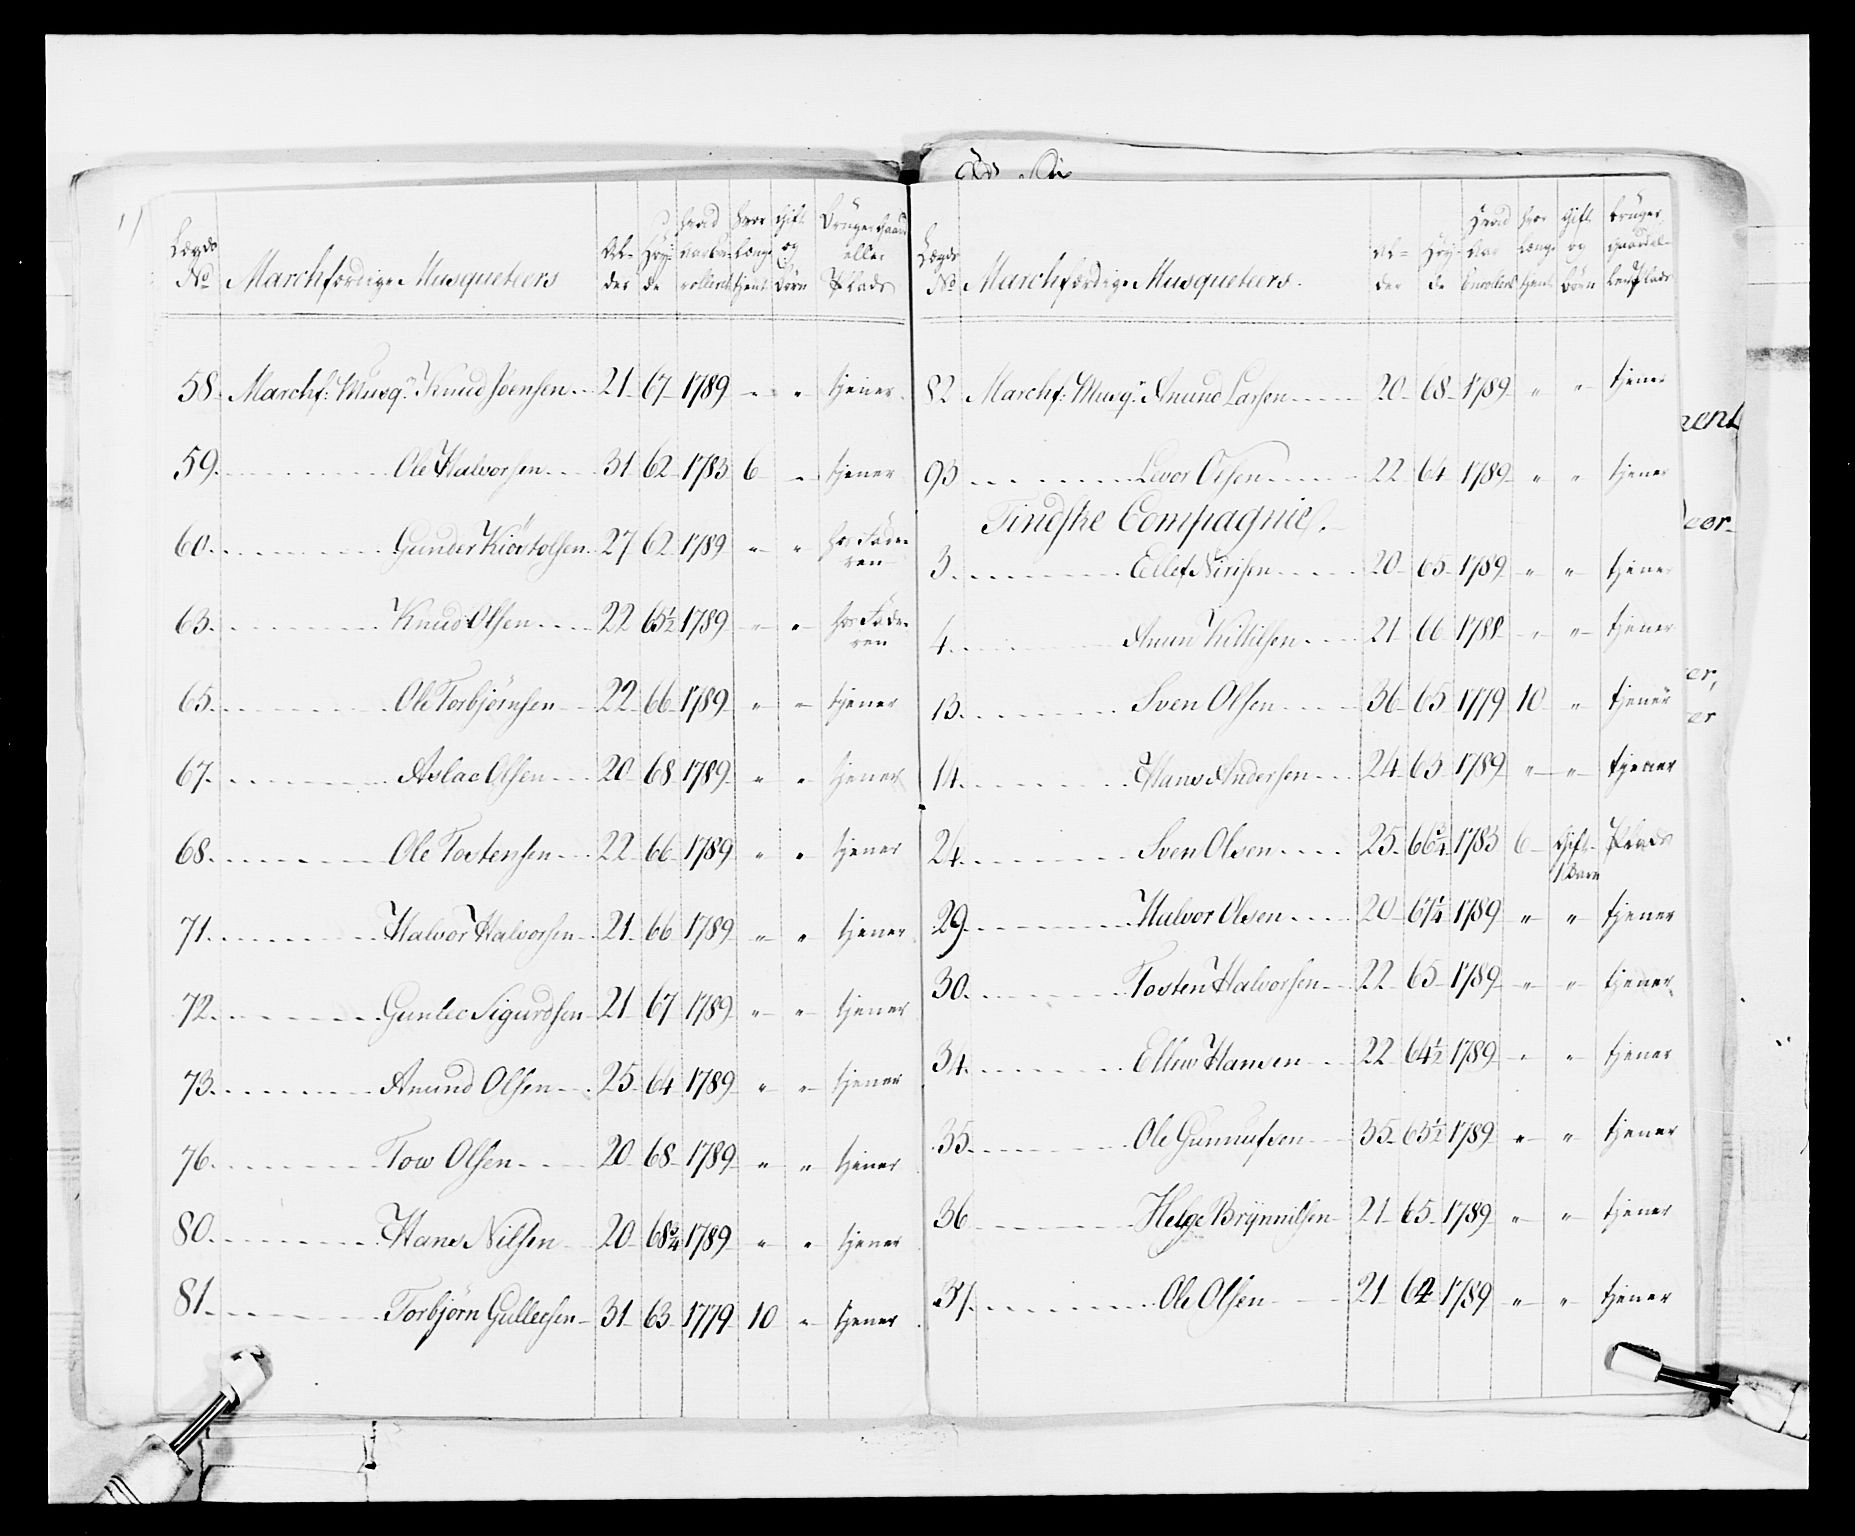 Lægds No Marchfærdige Musqueteers Al-der Høy-de hvad aar enrolleret hvor længe tient gift og Børn Bruger Gaard eller Plads
58. Marchf: Musqr. Knud Joensen 21 67 1789 " " tjener
59. Ole Halvorsen 31 62 1783 6 " tjener
60. Gunder Kiøstolsen 27 62 1789 " " hos Fade-ren
63. Knud Olsen 22 65½ 1789 " " hos Fade-ren
65. Ole Torbjørnsen 22 66 1789 " " tjener
67. Aslac Olsen 20 68 1789 " " tjener
68. Ole Tostensen 22 66 1789 " " tjener
71. Halvor Halvorsen 21 66 1789 " " tjener
72. Gunlec Sigurdsen 21 67 1789 " " tjener
73. Anund Olsen 25 64 1789 " " tjener
76. Tow Olsen 20 68 1789 " " tjener
80. Hans Nilsen 20 68¾ 1789 " " tjener
81. Torbjørn Gullecsen 31 63 1779 10 " tjener
Lægds No Marchfærdige Musqueteers. Al-der Høy-de Hvad Aar Enrolleret hvor længe tjent gift og Børn bruger Gaard el-ler Plads
82 Marchf: Musqr. Anund Larsen 20 68 1789 " " tjener
93 Livor Olsen 22 64 1789 " " tjener
Tindske Compagnie.
3. Ellef Nirisen 20 65 1789 " " tjener
4. Anun Kittilsen 21 66 1788 " " tjener
13. Sven Olsen 36 65 1779 10 " tjener
14. Hans Andersen 24 63 1789 " " tjener
24. Sven Olsen 25 66¾ 1783 6 Gift 1 Barn Plads
29. Halvor Olsen 20 67¼ 1789 " " tjener
30. Tosten Halvorsen 22 65 1789 " " tjener
34. Ellew Hansen 22 64½ 1789 " " tjener
35. Ole Gunnufsen 35 63½ 1789 " " tjener
36 Helge Brynnilsen 21 65 1789 " " tjener
37. Ole Olsen 21 64 1789 " " tjener